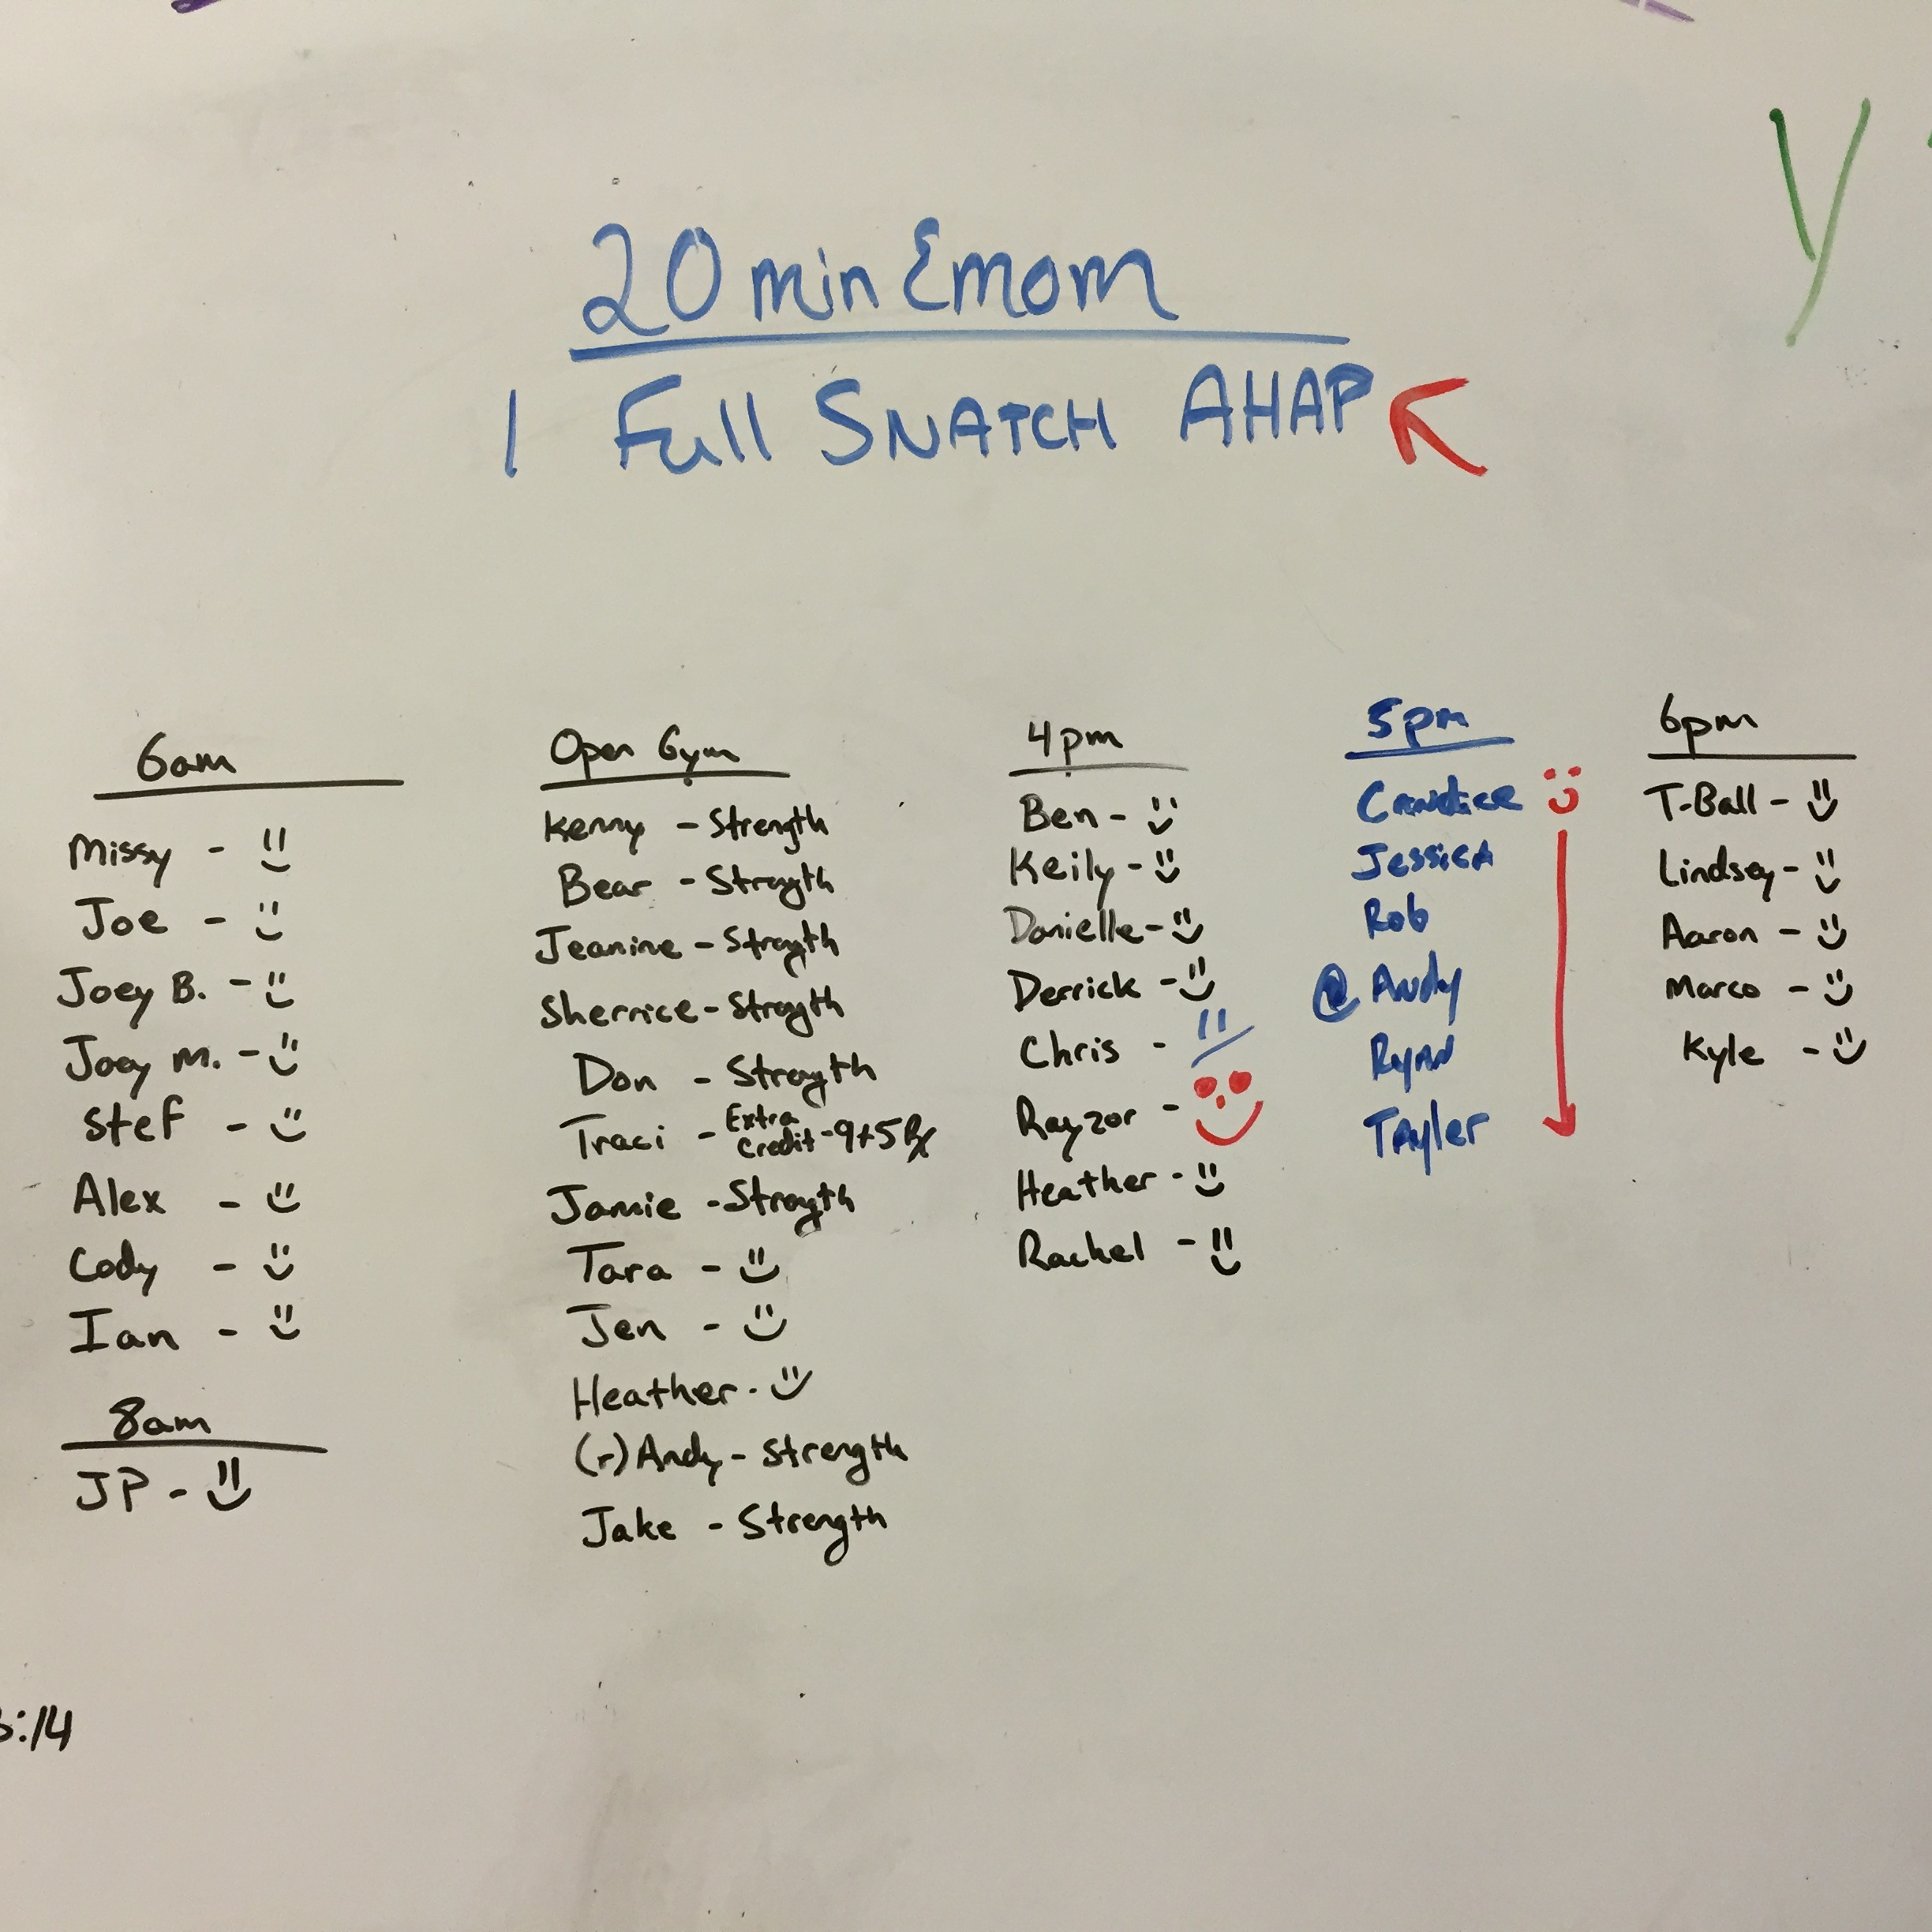 20 min Emom
1 Full SNATCH AHAP
6am
Missy -
Joe -
Joey B. -
Joey M. -
Stef -
Alex -
Cody -
Ian -
8am
JP -
Open Gym
Kenny - Strength
Bear - Strength
Jeanine - Strength
Sherrice - Strength
Don - Strength
Traci - Extra Credit - 9+5 Rx
Jamie - Strength
Tara -
Jen -
Heather -
(r) Andy - Strength
Jake - Strength
4pm
Ben -
Keily -
Danielle -
Derrick -
Chris -
Rayzor -
Heather -
Rachel -
5pm
Candice
Jessica
Rob
@ Andy
Ryan
Tayler
6pm
T-Ball -
Lindsey -
Aaron -
Marco -
Kyle -
:14
Y